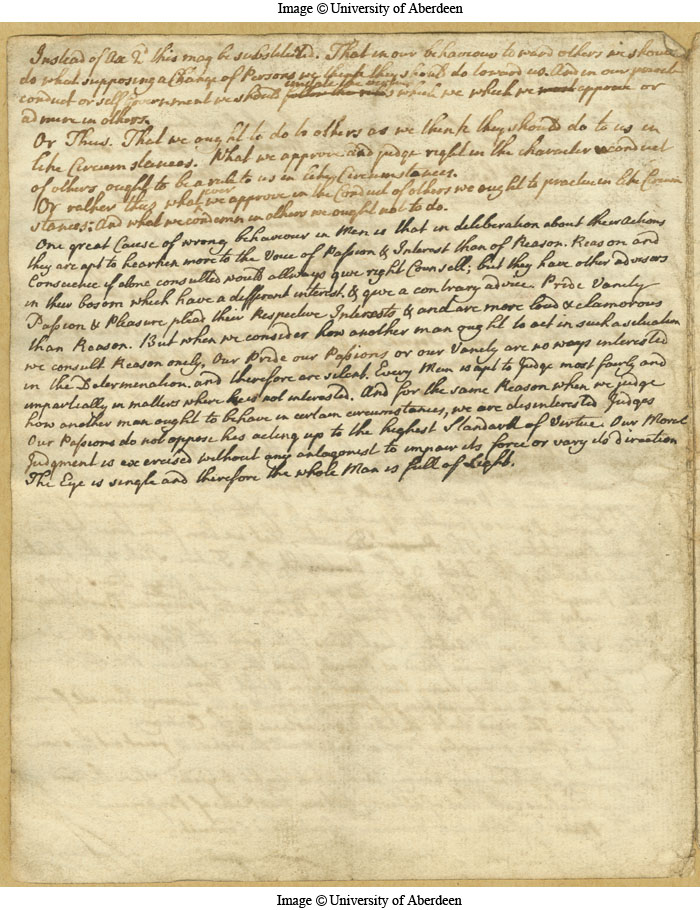 Image © University of Aberdeen
Instead of Ax 2d this may be substituted. That in our behaviour toward others we should
do what supposing a Change of Persons we think they should do toward us. And in our
conduct or self government we should imitate follow the which we which we approve or
admire in others.
Or Thus. That we ought to do to others as we think they should do to us in
like Circumstances. What we approve and judge right in the character & conduct
of others, ought to be a rule to us in like Circumstances.
Or rather thus what ever we approve in the Conduct of others we ought to practice in like Circum
stances; And what we condemn in others we ought not to do.
One great Cause of wrong behaviour in Men is that in deliberation about their Actions
they are apt to hearken more to the Voice of Passion & Interest than of Reason. Reason and
Conscience if alone consulted would allways give right Counsell; but they have other advisers
in their bosom which have a different interest & give a contrary advice. Pride Vanity
Passion & Pleasure plead their Respective Interests & and are more loud & clamorous
than Reason. But when we consider how another man ought to act in such a situation
we consult Reason onely, Our Pride our Passions or our Vanity are no ways interested
in the Determination. and therefore are silent. Every Man is apt to Judge most fairly and
impartially in matters where he is not interested. And for the same Reason when we judge
how another man ought to behave in certain circumstances, we are disinterested Judges
Our Passions do not oppose his acting up to the highest Standard of Virtue. Our Moral
Judgment is exercised without any antagonist to impair its force or vary its direction
The Eye is single and therefore the whole Man is full of Light.
Image © University of Aberdeen